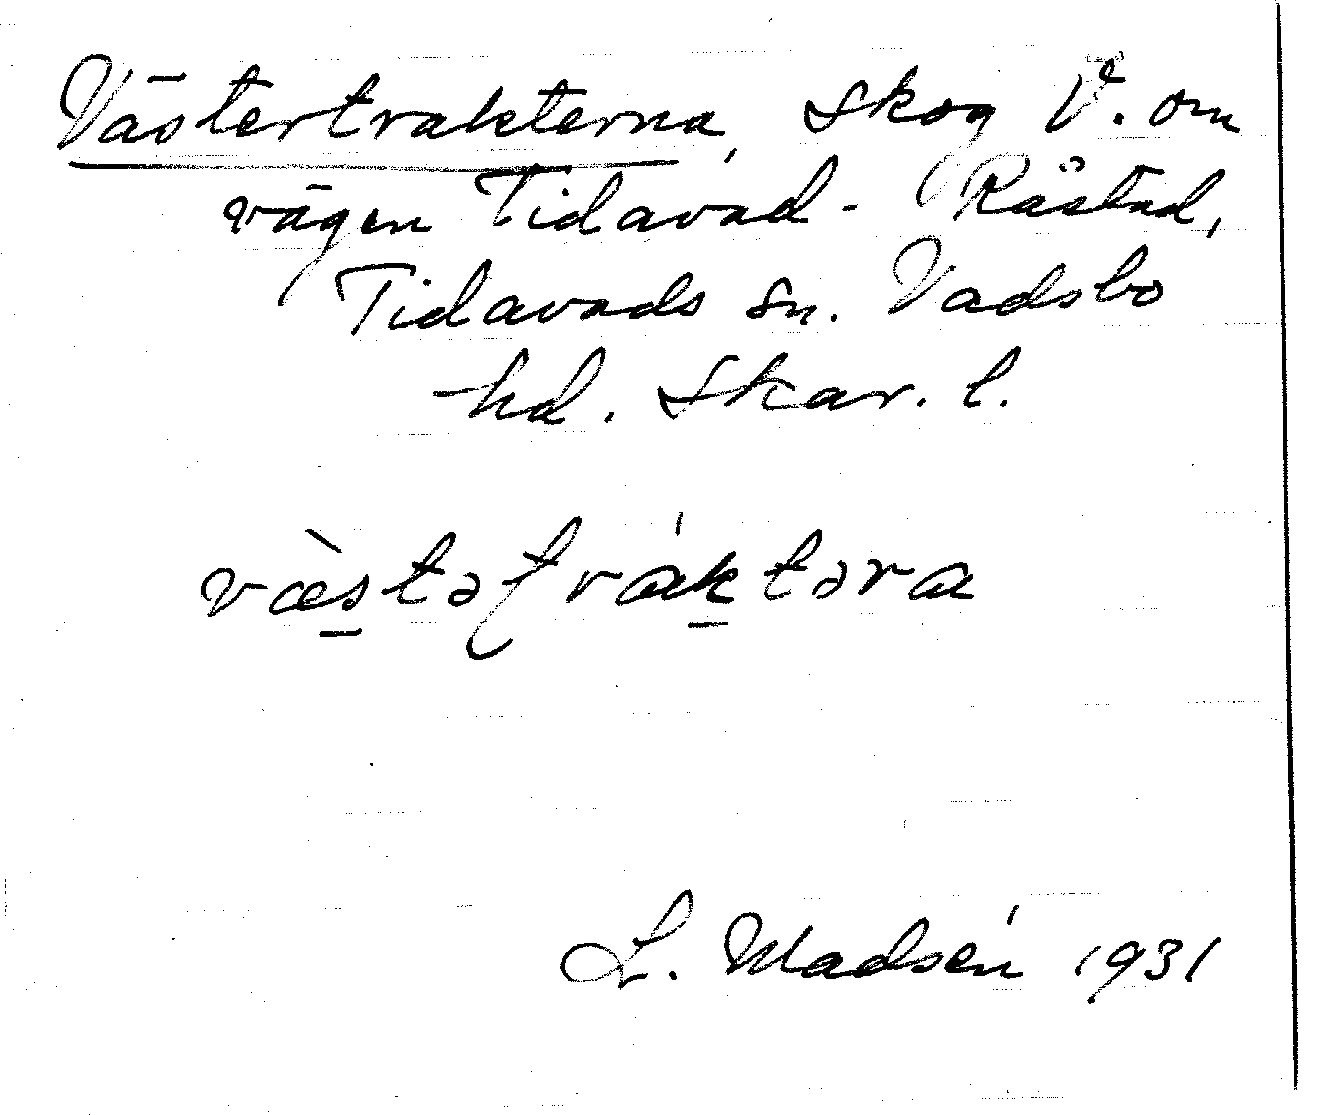 Västertrakterna, skog V. om
vägen Tidavad - Råstad,
Tidavads sn. Vadsbo
hd. Skar. l.
væ̀stəʈráktəra
L. Madsén 1931